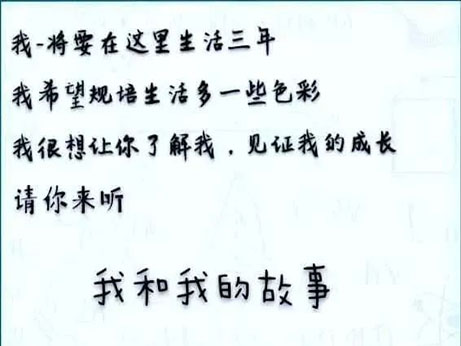 我-将要在这里生活三年
我希望规培生活多一些色彩
我很想让你了解我，见证我的成长
请你来听
我和我的故事